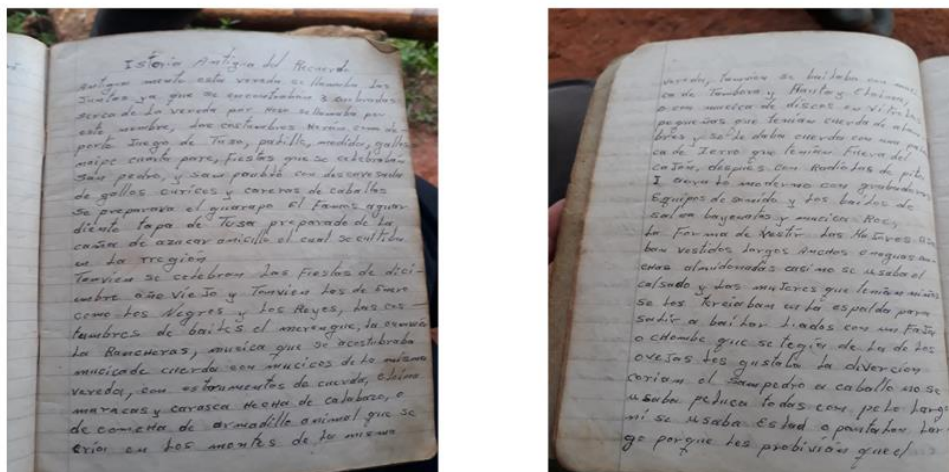 Istoria Antigua del Recuerdo
Antigua mente esta vereda se llamaba Las
Juntas ya que se encontraban 3 quebradas
serca de La vereda por eso se llamaba por
este nombre, Las costumbres
porte Juego de Tuso, palillo, medido, gallos
naipe cuarta pare, Fiestas que se celebraban
san pedro, y san pablo con descavesada
de gallos curicos y careras de caballos
se preparava el guarapo El Famoso aguar
diente tapa de Tusa preparado de La
caña de azucar amarillo el cual se cultiba
en La rregion
Tanvien se celebran Las Fiestas de dici-
embre año vieJo y Tanvien Los de Enero
como Los Negros y Los Reyes, Las cos
tumbres de bailes el merengue, la
La Rancheras, musica que se acostubraba
musica de cuerda con musicos de La misma
vereda, con estrumentos de cuerda,
maracas y carasca Hecha de calabazo, o
de concha de armadillo animal que se
cria en Los montes de La misma
vereda, tanvien se bailaba con musi
ca de Tambora y Flauta y
o con musica de discos en vitrolas
pequeñas que tenian cuerda de alam
bres y se le daba cuerda con una palan
ca de Ierro que tenian Fuera del
cajon, despues con Radiolas de pilas
I aora lo moderno con grabadoras
Equipos de sonido y Los bailes de
salsa bayenatos y mucica Roc,
La Forma de Vestir Las MuJeres usa
ban vestidos Largos Anchos enaguas an
chas almidonadas casi no se usaba el
calsado y Las muJeres que tenian niños
se los terciaban en La espalda para
salir a bailar Liados con un FaJon
o chombe que se tegia de La de Los
oveJas Les gustaba La divercion
corian el san pedro a caballo no se
usaba peluca todas con pelo Largo
ni se usaba Eslad o pantalon Lar
go porque Les probivian que el